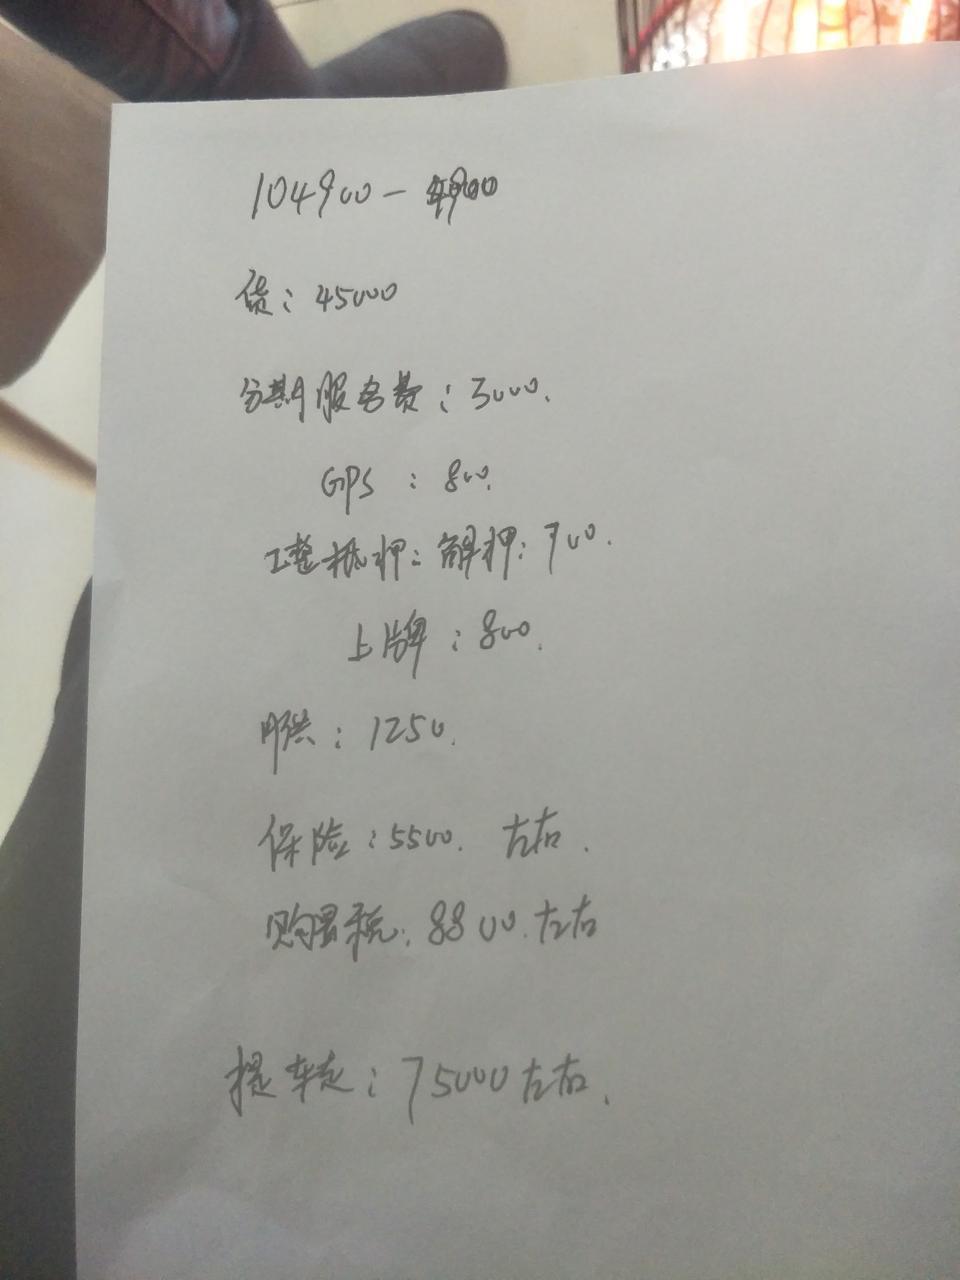 104900－4900
贷：45000
分期服务费：3000.
GPS：800.
抵押：解押：700.
上牌：800.
月供：1250.
保险：5500.左右.
购置税.8800.左右
提车走：75000左右.